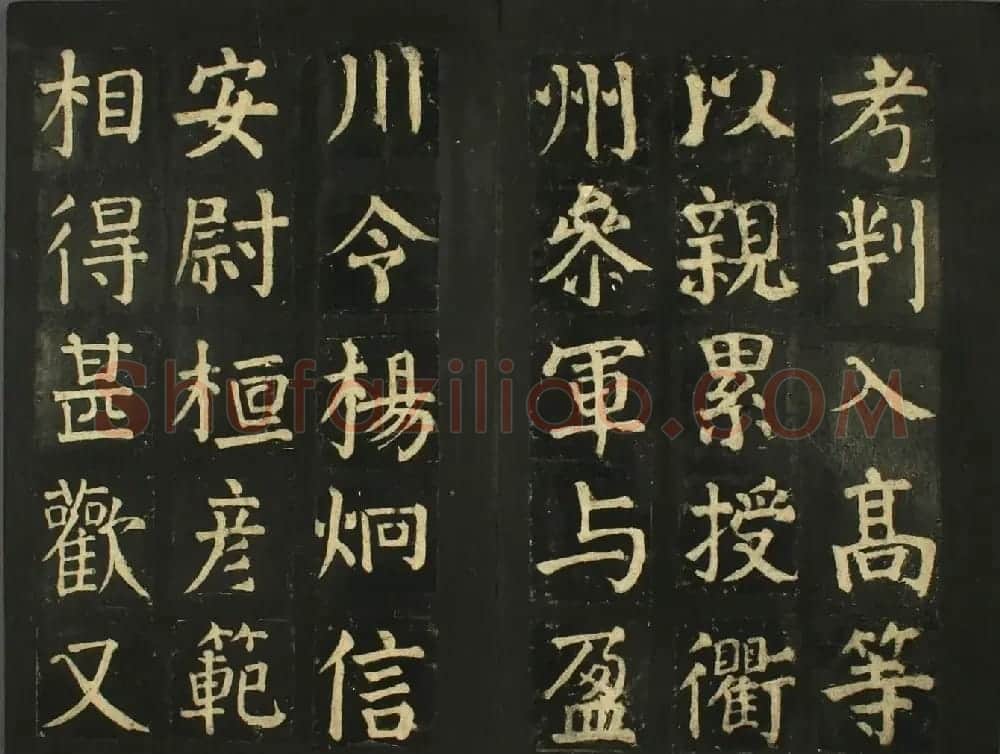 考判入髙等
以親累授衢
州叅軍与盈
川令楊炯信
安尉桓彦範
相得甚歡又
Shufaziliao.COM